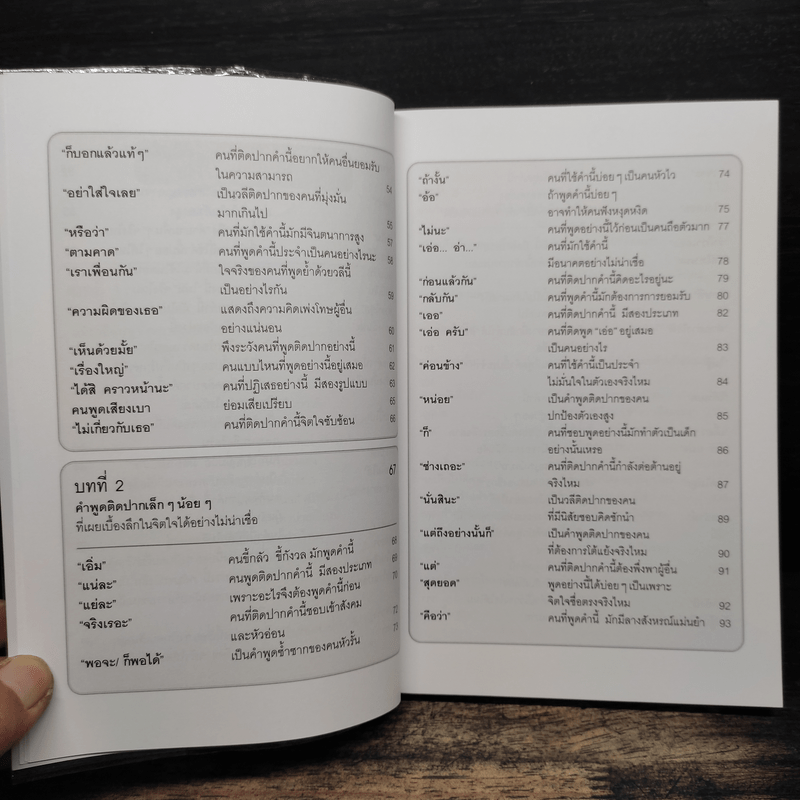 "ก็บอกแล้วแท้ๆ" คนที่ติดปากคำนี้อยากให้คนอื่นยอมรับ
ในความสามารถ 54
"อย่าใส่ใจเลย" เป็นวลีติดปากของคนที่มุ่งมั่น
มากเกินไป 56
"หรือว่า" คนที่มักใช้คำนี้มักมีจินตนาการสูง 57
"ตามคาด" คนที่พูดคำนี้ประจำเป็นคนอย่างไรนะ 58
"เราเพื่อนกัน" ใจจริงของคนที่พูดย้ำด้วยวลีนี้
เป็นอย่างไรกัน 59
"ความผิดของเธอ" แสดงถึงความคิดเพ่งโทษผู้อื่น
อย่างแน่นอน 60
"เห็นด้วยมั้ย" พึงระวังคนที่พูดติดปากอย่างนี้ 61
"เรื่องใหญ่" คนแบบไหนที่พูดอย่างนี้อยู่เสมอ 62
"ได้สิ คราวหน้านะ" คนที่ปฏิเสธอย่างนี้ มีสองรูปแบบ 63
คนพูดเสียงเบา ย่อมเสียเปรียบ 65
"ไม่เกี่ยวกับเธอ" คนที่ติดปากคำนี้จิตใจซับซ้อน 66
บทที่ 2 67
คำพูดติดปากเล็ก ๆ น้อย ๆ
ที่เผยเบื้องลึกในจิตใจได้อย่างไม่น่าเชื่อ
"เอิ่ม" คนขี้กลัว ขี้กังวล มักพูดคำนี้ 68
"แน่ละ" คนพูดติดปากคำนี้ มีสองประเภท 69
"แย่ละ" เพราะอะไรจึงต้องพูดคำนี้ก่อน 70
"จริงเรอะ" คนที่ติดปากคำนี้ชอบเข้าสังคม
และหัวอ่อน 72
"พอจะ/ ก็พอได้" เป็นคำพูดซ้ำซากของคนหัวรั้น 73
"ถ้างั้น" คนที่ใช้คำนี้บ่อย ๆ เป็นคนหัวไว 74
"อ้อ" ถ้าพูดคำนี้บ่อย ๆ
อาจทำให้คนฟังหงุดหงิด 75
"ไม่นะ" คนที่พูดอย่างนี้ไว้ก่อนเป็นคนถือตัวมาก 77
"เอ่อ... อ่า..." คนที่มักใช้คำนี้
มีอนาคตอย่างไม่น่าเชื่อ 78
"ก่อนแล้วกัน" คนที่ติดปากคำนี้คิดอะไรอยู่นะ 79
"กลับกัน" คนที่พูดคำนี้มักต้องการการยอมรับ 80
"เออ" คนที่ติดปากคำนี้ มีสองประเภท 82
"เอ่อ ครับ" คนที่ติดพูด "เอ่อ" อยู่เสมอ
เป็นคนอย่างไร 83
"ค่อนข้าง" คนที่ใช้คำนี้เป็นประจำ
ไม่มั่นใจในตัวเองจริงไหม 84
"หน่อย" เป็นคำพูดติดปากของคน
ปกป้องตัวเองสูง 85
"ก็" คนที่ชอบพูดอย่างนี้มักทำตัวเป็นเด็ก
อย่างนั้นเหรอ 86
"ช่างเถอะ" คนที่ติดปากคำนี้กำลังต่อต้านอยู่
จริงไหม 87
"นั่นสินะ" เป็นวลีติดปากของคน
ที่มีนิสัยชอบคิดชักนำ 89
"แต่ถึงอย่างนั้นก็" เป็นคำพูดติดปากของคน
ที่ต้องการโต้แย้งจริงไหม 90
"แต่" คนที่ติดปากคำนี้ต้องพึ่งพาผู้อื่น 91
"สุดยอด" พูดอย่างนี้ได้บ่อย ๆ เป็นเพราะ
จิตใจซื่อตรงจริงไหม 92
"คือว่า" คนที่พูดคำนี้ มักมีลางสังหรณ์แม่นยำ 93